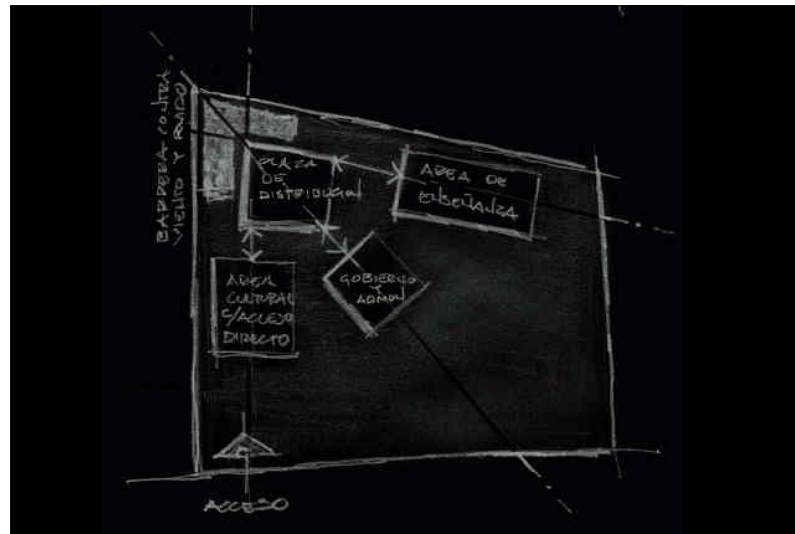 BARRERA CONTRA
VIENTO Y RUIDO
PLAZA
DE
DISTRIBUCION
AREA DE
ENSEÑANZA
AREA
CULTURAL
C/ACCESO
DIRECTO
GOBIERNO
Y
ADMON
ACCESO